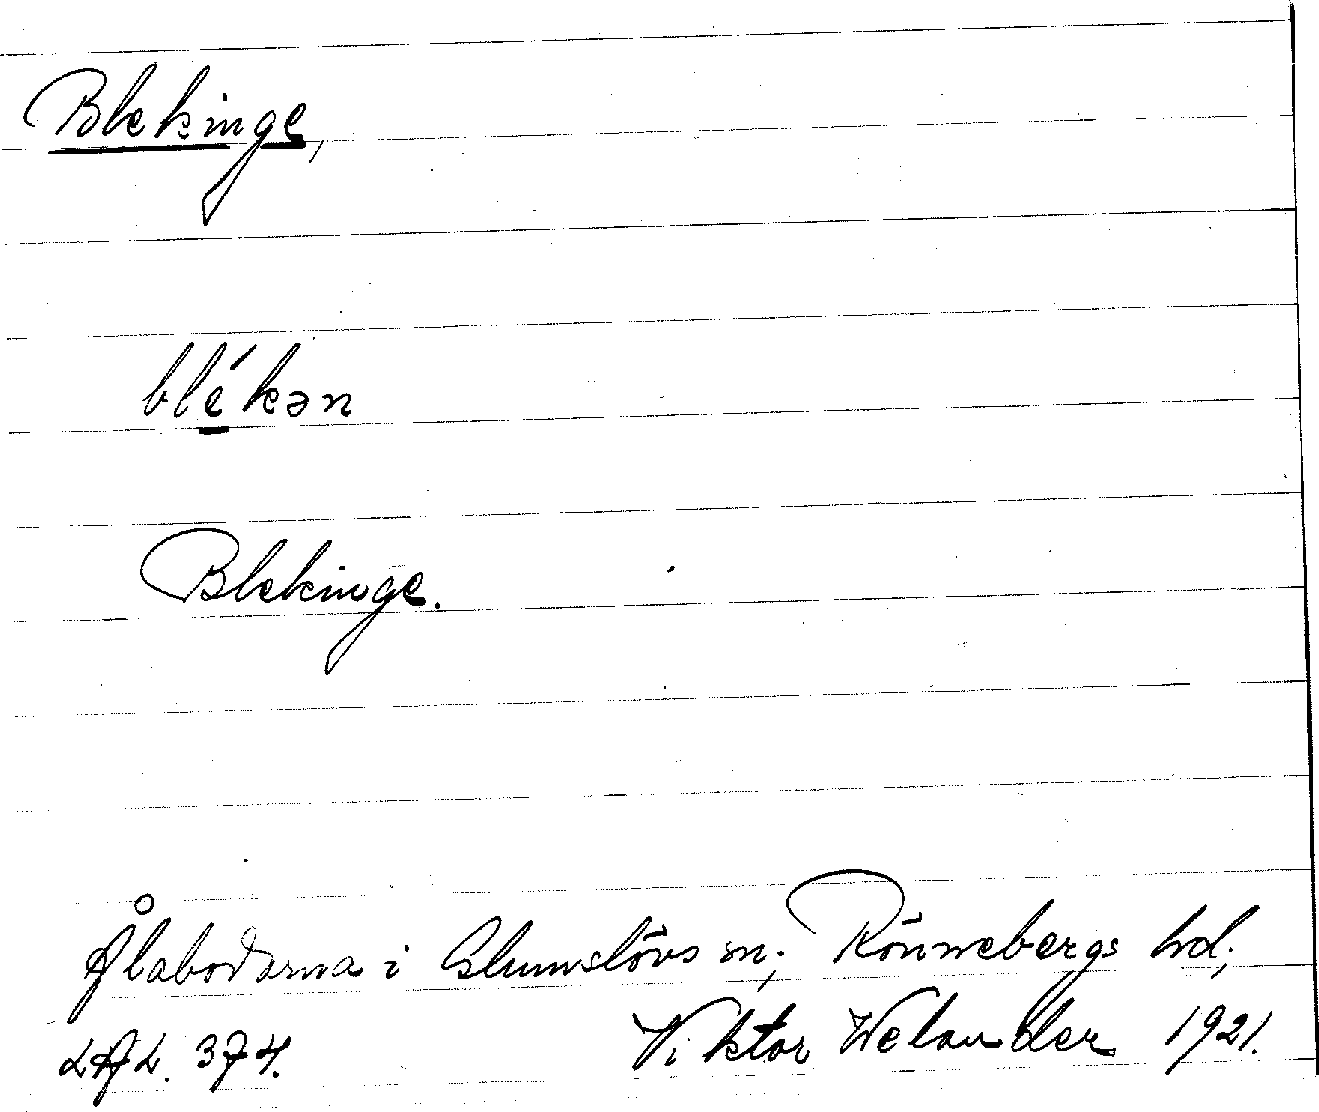 Blekinge,
blékən
Blekinge.
Ålabodarna i Glumslövs sn; Rönnebergs hd;
LAL. 374. Viktor Welander 1921.